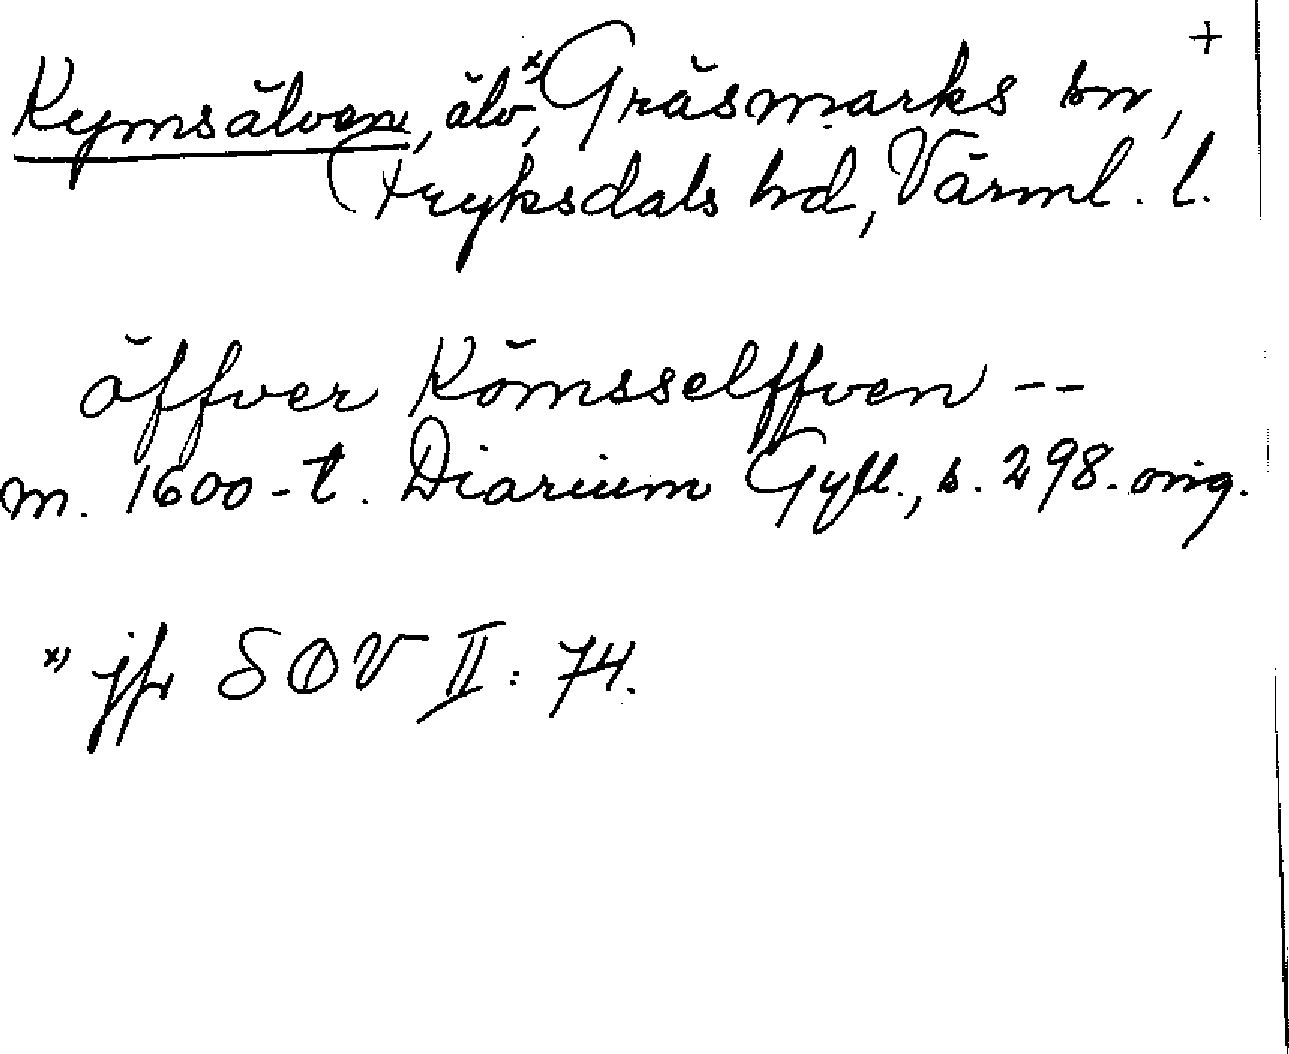 +
Kymsälven, älv,x) Gräsmarks sn,
Fryksdals hd, Värml. l.
öffver Kömsselffven --
m. 1600-t. Diarium Gyll., s. 298. orig.
x) jfr SOV II: 74.